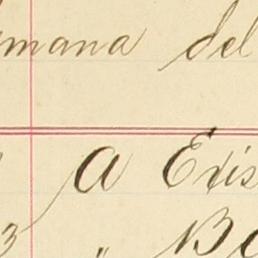 mana del
A Exis
3 " Ba